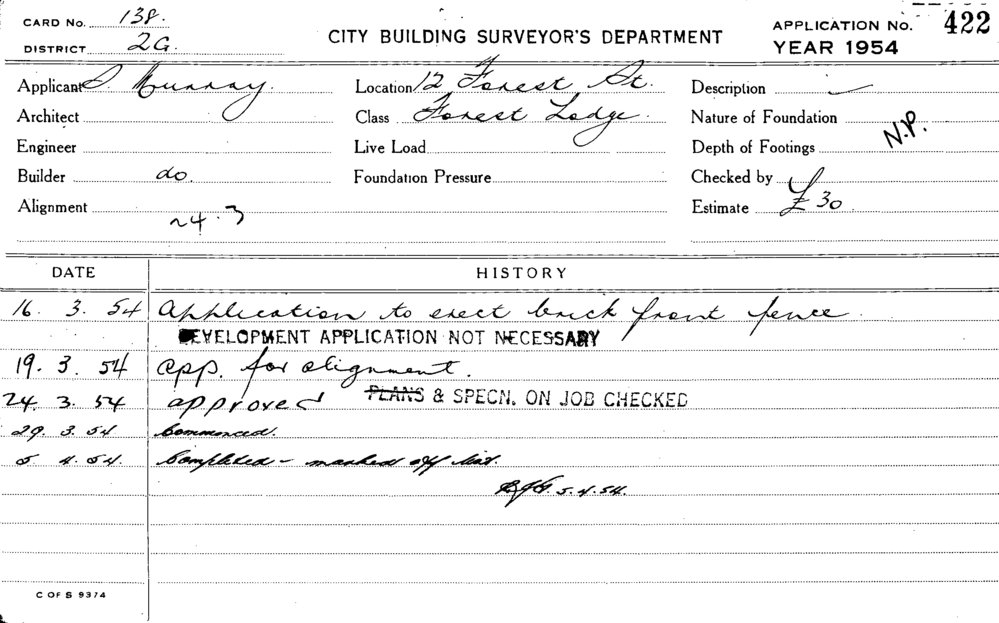 CARD No. 138.
DISTRICT 2G.
CITY BUILDING SURVEYOR'S DEPARTMENT
APPLICATION No. 422
YEAR 1954
Applicant S Murray.
Location 12 Forest St.
Description
Architect
Class Forest Lodge.
Nature of Foundation
N.P.
Engineer
Live Load
Depth of Footings
Builder do.
Foundation Pressure
Checked by
Alignment 24.3
Estimate £ 30
DATE HISTORY
16. 3. 54 Application to erect brick front fence.
DEVELOPMENT APPLICATION NOT NECESSARY
19. 3. 54 app. for alignment.
24. 3. 54 approved PLANS & SPECN. ON JOB CHECKED
29. 3. 54 Commenced.
5. 4. 54. Completed – marked off list.
5.4.54.
C OF S 9374